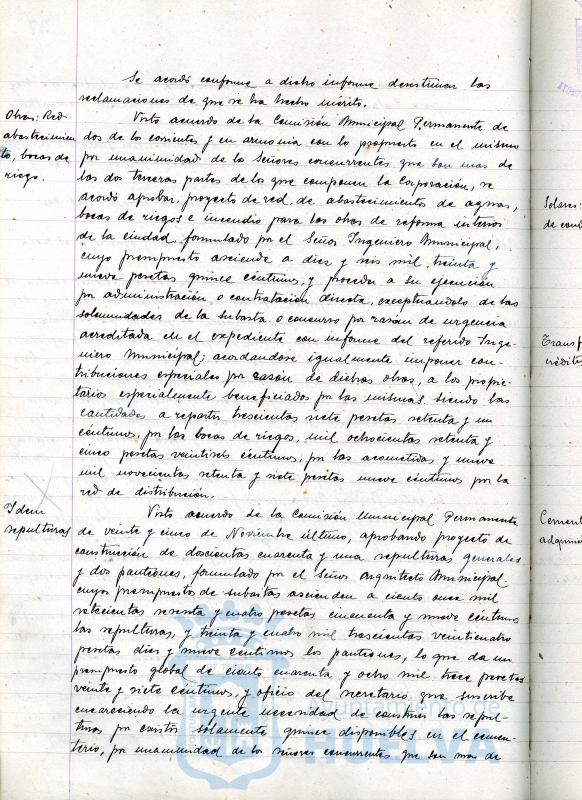 Se acordó conforme a dicho informe desestimar las
reclamaciones de que se ha hecho mérito.
Obras: Red
abastecimien
to, bocas de
riego.
Visto acuerdo de la Comisión Municipal Permanente de
dos de los corrientes y en armonia con lo propuesto en el mismo
por unanimidad de los Señores concurrentes que son mas de
las dos terceras partes de los que componen la Corporación, se
acordó aprobar, proyecto de red, de abastecimientos de aguas,
bocas de riegos e incendio para las obras de reforma interior
de la ciudad, formulado por el Señor Ingeniero Municipal,
cuyo presupuesto asciende a diez y seis mil, treinta y
nueve pesetas quince céntimos, y proceder a su ejecución
por administración, o contratación directa, exceptuándolo de las
solemnidades de la subasta o concurso por razón de urgencia
acreditada en el expediente con informe del referido Inge-
niero Municipal; acordandose igualmente imponer con-
tribuciones especiales por razón de dichas obras, a los propie-
tarios especialmente beneficiados por las mismas siendo las
cantidades a repartir trescientas siete pesetas setenta y un
céntimos, por las bocas de riegos, mil ochocientas setenta y
cinco pesetas veintiseis céntimos, por las acometidas y nueve
mil novecientas setenta y siete pesetas nueve céntimos por la
red de distribución.
Idem
sepulturas
Visto acuerdo de la Comisión Municipal Permanente
de veinte y cinco de Noviembre último, aprobando proyecto de
construcción de doscientas cuarenta y una sepulturas generales
y dos panteones, formulado por el Señor Arquitecto Municipal
cuyos presupuestos de subastas ascienden a ciento once mil
setecientas sesenta y cuatro pesetas cincuenta y nueve céntimos
las sepulturas, y treinta y cuatro mil trescientas veinticuatro
pesetas diez y nueve centimos los panteones, lo que da un
presupuesto global de ciento cuarenta y ocho mil trece pesetas
veinte y siete céntimos, y oficio del secretario que suscribe
encareciendo la urgente necesidad de construir las sepul-
turas por existir solamente quince disponibles en el cemen-
terio, por unanimidad de los señores concurrentes que son mas de
Solares:
Ayuntamiento de
HUELVA